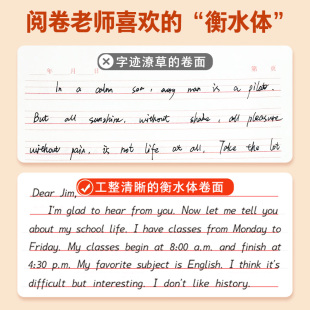 阅卷老师喜欢的“衡水体”
字迹潦草的卷面
年 月 日 第 页
In a calm sea, every man is a pilot.
But all sunshine, without shade, all pleasure
without pain, is not life at all. Take the lot
Dear Jim,
工整清晰的衡水体卷面
I'm glad to hear from you. Now let me tell you
about my school life. I have classes from Monday to
Friday. My classes begin at 8:00 a.m. and finish at
4:30 p.m. My favorite subject is English. I think it's
difficult but interesting. I don't like history.